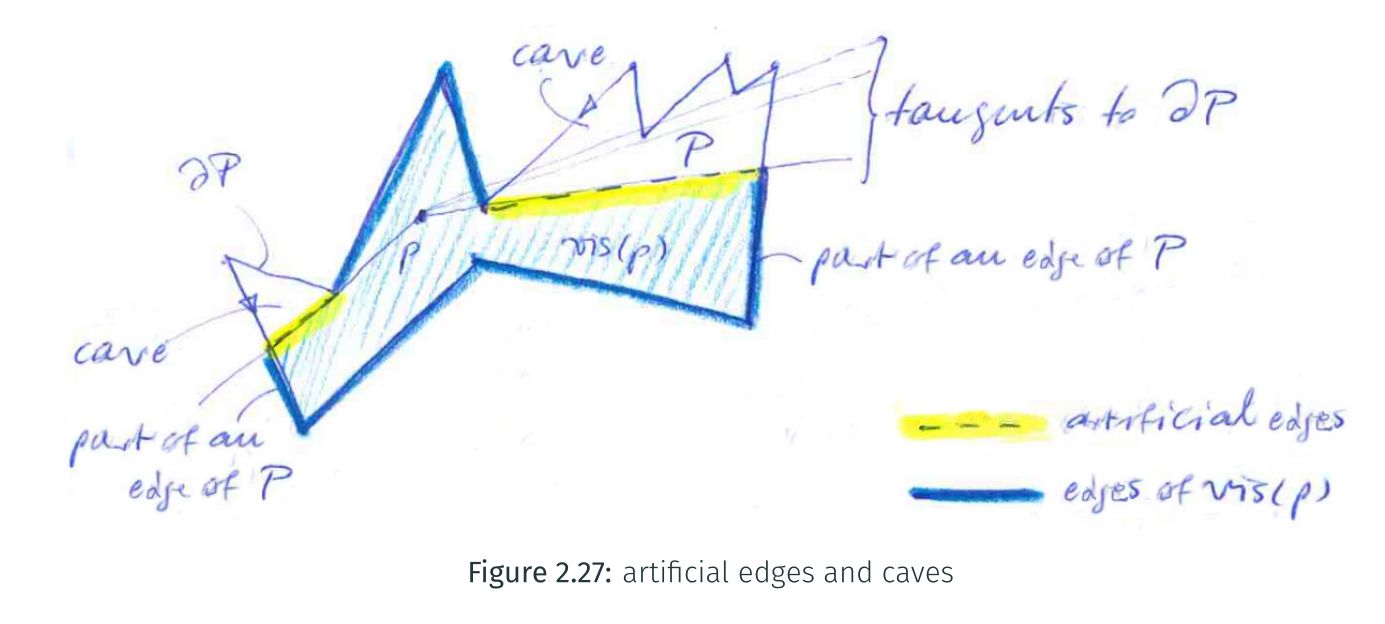 cave
tangents to ∂P
P
∂P
p
vis(p)
part of an edge of P
cave
part of an
edge of P
artificial edges
edges of vis(p)
Figure 2.27: artificial edges and caves